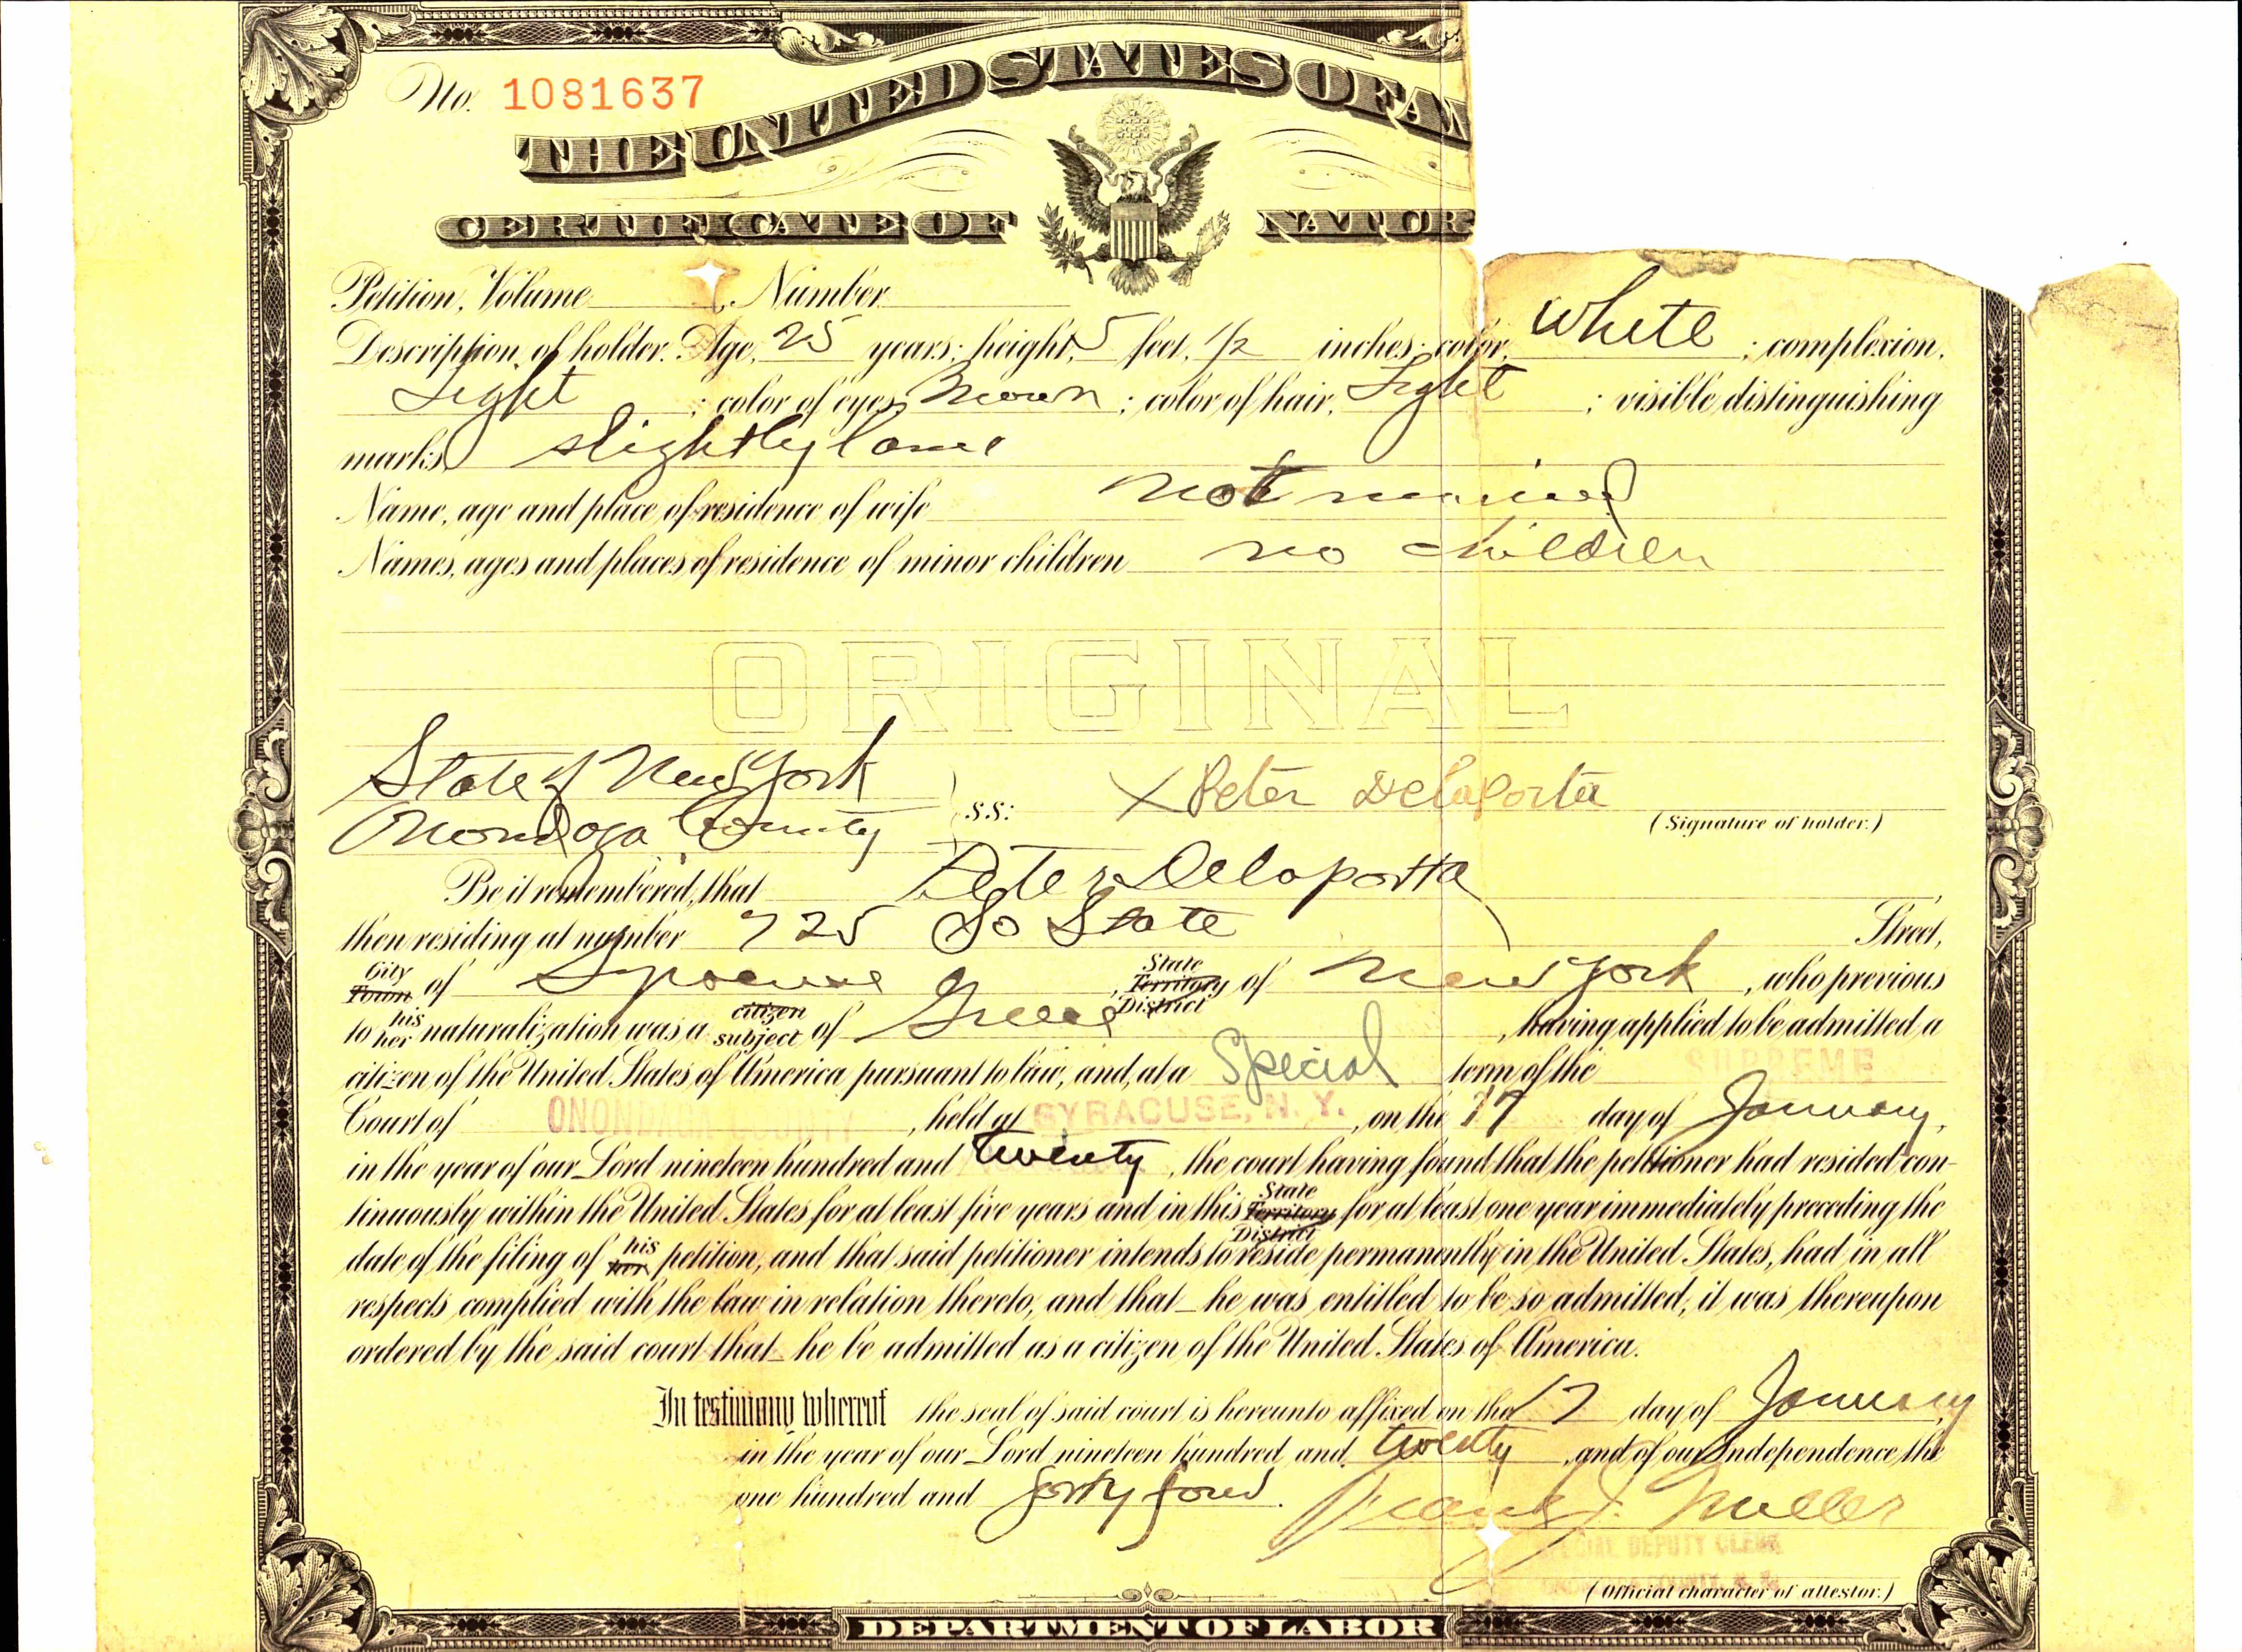 No. 1081637
THE UNITED STATES OF AM
CERTIFICATE OF NATUR
Petition, Volume , Number
Description of holder. Age, 25 years; height, 5 feet, 1/2 inches; color, White ; complexion,
Light ; color of eyes, Brown ; color of hair, Light ; visible distinguishing
marks, slightly lame
Name, age and place of residence of wife not married
Names, ages and places of residence of minor children no children
ORIGINAL
State of New York
Onondaga County s.s: X Peter Delaporta
(Signature of holder.)
Be it remembered, that Peter Delaporta
then residing at number 725 So State Street,
City Town of Syracuse , State Territory District of New York , who previous
to his her naturalization was a citizen subject of Greece , having applied to be admitted a
citizen of the United States of America pursuant to law, and, at a Special term of the SUPREME
Court of ONONDAGA COUNTY , held at SYRACUSE, N. Y. , on the 17 day of January,
in the year of our Lord nineteen hundred and twenty , the court having found that the petitioner had resided con-
tinuously within the United States for at least five years and in this State Territory District for at least one year immediately preceding the
date of the filing of his her petition, and that said petitioner intends to reside permanently in the United States, had in all
respects complied with the law in relation thereto, and that he was entitled to be so admitted, it was thereupon
ordered by the said court that he be admitted as a citizen of the United States of America.
In testimony whereof the seal of said court is hereunto affixed on the 17 day of January
in the year of our Lord nineteen hundred and twenty , and of our Independence the
one hundred and forty four. Frank J. Miller
SPECIAL DEPUTY CLERK
(Official character of attestor.)
DEPARTMENT OF LABOR